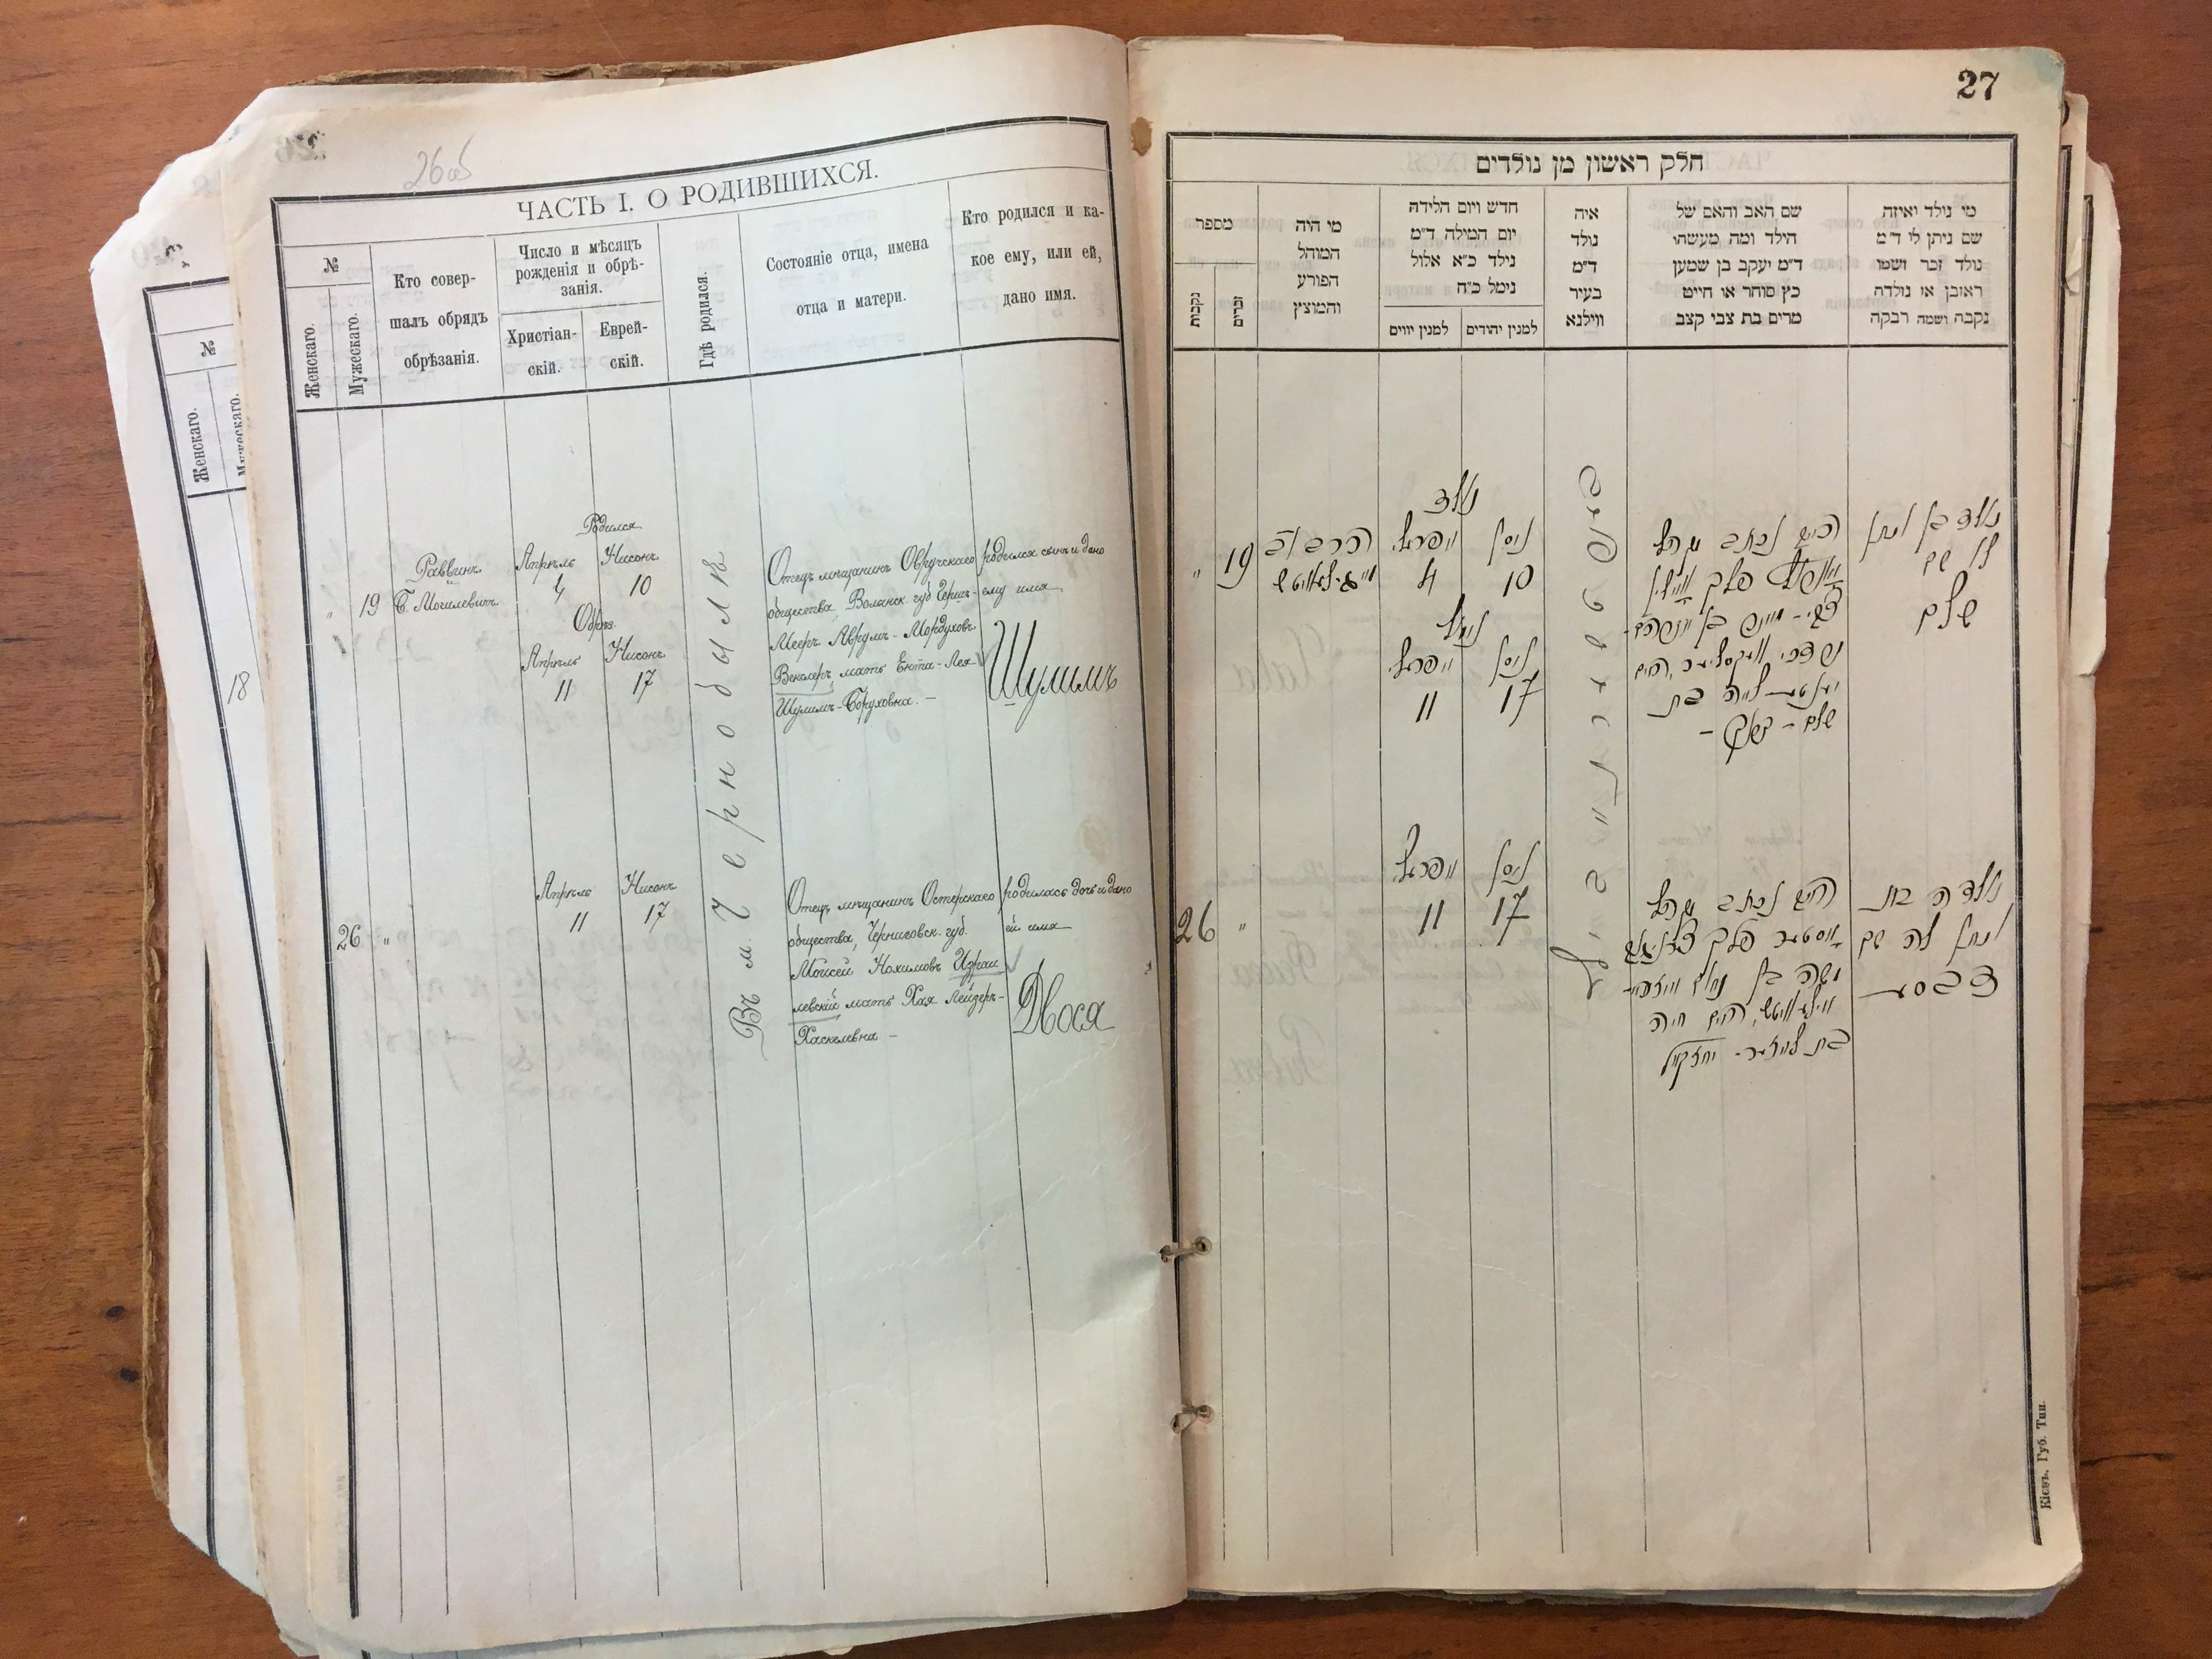 26об
ЧАСТЬ I. О РОДИВШИХСЯ.
№
Женскаго.
Мужескаго.
Кто совер-
шалъ обрядъ
обрѣзанія.
Число и мѣсяцъ
рожденія и обрѣ-
занія.
Христіан-
скій.
Еврей-
скій.
Гдѣ родился.
Состояніе отца, имена
отца и матери.
Кто родился и ка-
кое ему, или ей,
дано имя.
№
Женскаго.
Мужескаго.
18
„ 19
Раввинъ
Б. Могилевичъ
Родился
Апрѣль Нисонъ
4 10
Обрѣз.
Апрѣль Нисонъ
11 17
Въ м. Чернобылѣ
Отецъ мѣщанинъ Овручскаго
общества, Волынск. губ
Мееръ Аврумъ-Мордуховъ
мать Ента-Лея
Шулимъ-Боруховна. —
родился сынъ и дано
ему имя
Шулимъ
26 „
Апрѣль Нисонъ
11 17
Отецъ мѣщанинъ Остерскаго
общества, Черниговск. губ.
Мойсей Нохимовъ Израи
левскій мать Хая Лейзеръ-
Хаскелевна —
родилась дочь и дано
ей имя
Двося
27
חלק ראשון מן נולדים
מספר
נקבות
זכרים
מי היה
המוהל
הפורע
והמוצץ
חדש ויום הלידה
יום המילה ד״מ
נילד כ״א אלול
נימל כ״ח
למנין יווים
למנין יהודים
איה
נולד
ד״מ
בעיר
ווילנא
שם האב והאם של
הילד ומה מעשהו
ד״מ יעקב בן שמען
כץ סוחר או חייט
מרים בת צבי קצב
מי נולד ואיזה
שם ניתן לו ד״מ
נולד זכר ושמו
ראובן או נולדה
נקבה ושמה רבקה
„ 19
הרב
נולד
אפריל ניסן
4 10
נימל
אפריל ניסן
11 17
האיש נכתב
בן
בת
שלום
נולד בן ונתן
לו שם
שלום
26 „
אפריל ניסן
11 17
האיש נכתב
משה בן נחום
האם חיה
בת לייזער-יחזקאל
נולדה בת
ונתן לה שם
דבסיע
Кіевъ, Губ. Тип.